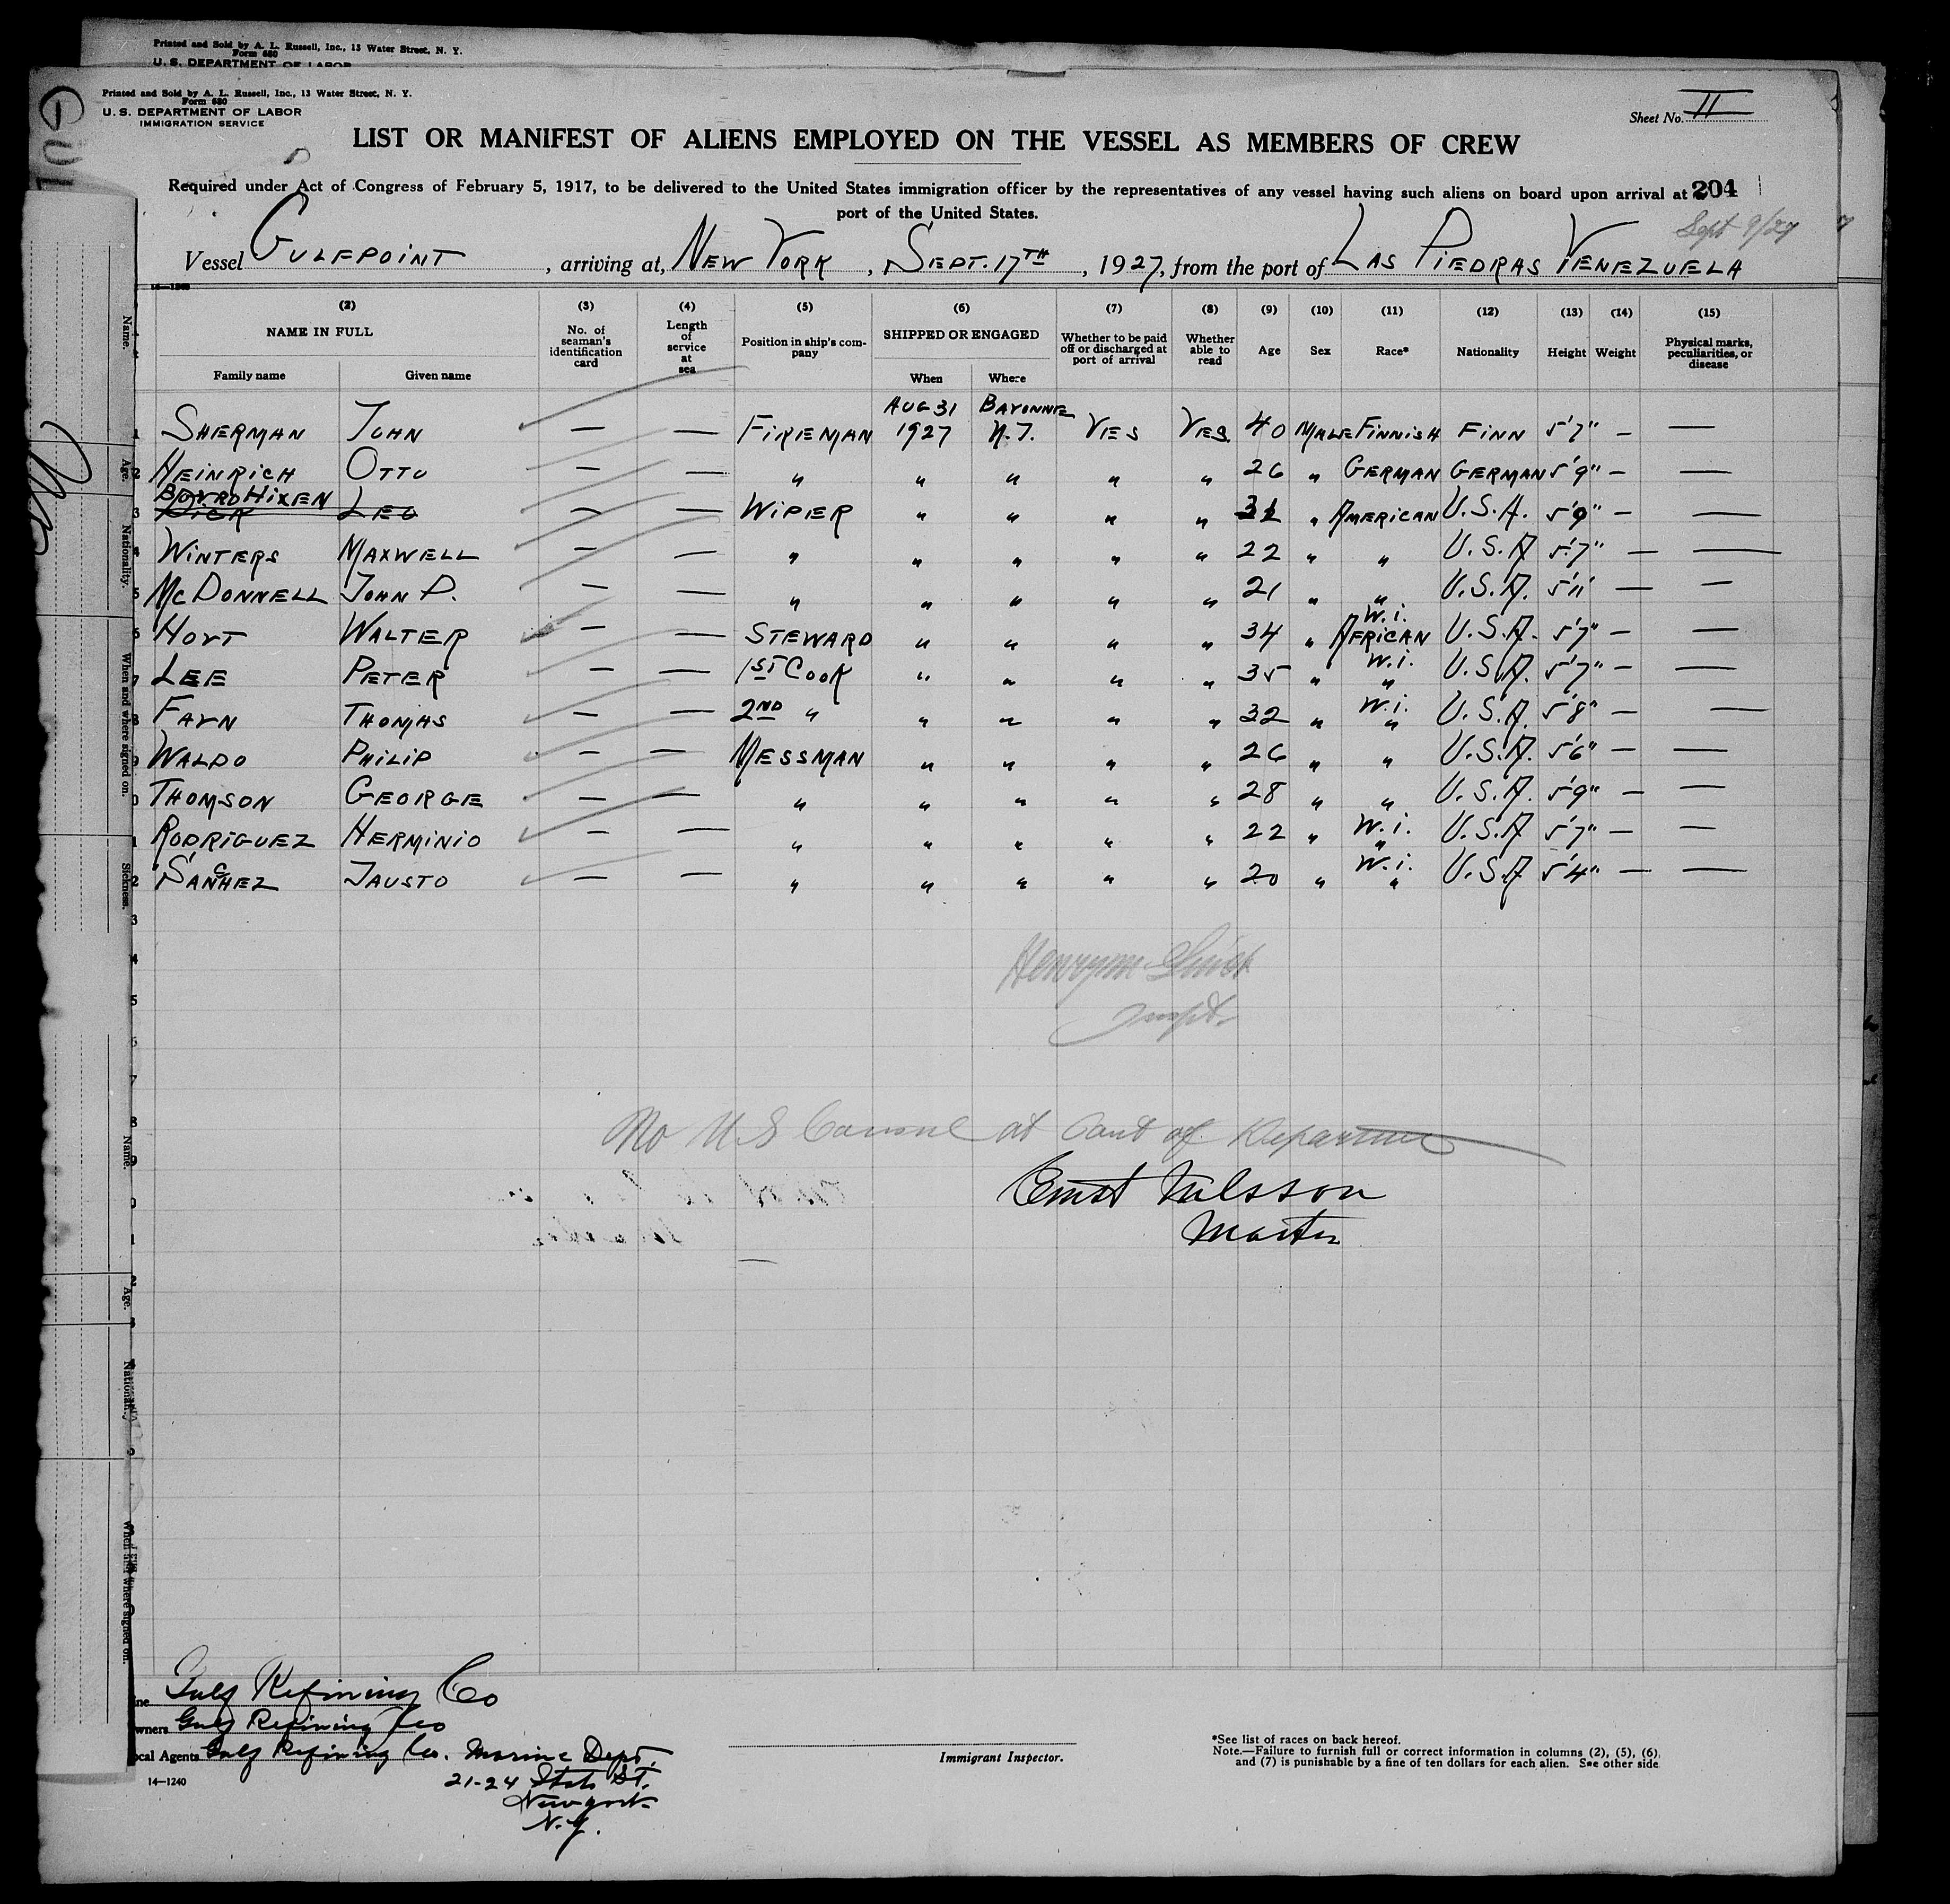 Printed and Sold by A. L. Russell, Inc., 13 Water Street, N. Y.
Form 680
U. S. DEPARTMENT OF LABOR
Printed and Sold by A. L. Russell, Inc., 13 Water Street, N. Y.
Form 680
U. S. DEPARTMENT OF LABOR
IMMIGRATION SERVICE
Sheet No. II
LIST OR MANIFEST OF ALIENS EMPLOYED ON THE VESSEL AS MEMBERS OF CREW
Required under Act of Congress of February 5, 1917, to be delivered to the United States immigration officer by the representatives of any vessel having such aliens on board upon arrival at 204
port of the United States.
Sept 9/27
Vessel GULFPOINT, arriving at, NEW YORK, SEPT. 17TH, 1927, from the port of LAS PIEDRAS VENEZUELA
(2) (3) (4) (5) (6) (7) (8) (9) (10) (11) (12) (13) (14) (15)
NAME IN FULL No. of seaman's identification card Length of service at sea Position in ship's company SHIPPED OR ENGAGED Whether to be paid off or discharged at port of arrival Whether able to read Age Sex Race* Nationality Height Weight Physical marks, peculiarities, or disease
Family name Given name When Where
AUG 31 BAYONNE
1 SHERMAN JOHN — — FIREMAN 1927 N.J. YES YES 40 MALE FINNISH FINN 5'7" — —
2 HEINRICH OTTO — — " " " " " 26 " GERMAN GERMAN 5'9" — —
BOYRD HIXEN
3 DICK LEO — — WIPER " " " " 32 " AMERICAN U.S.A. 5'9" — —
4 WINTERS MAXWELL — — " " " " " 22 " " U.S.A 5'7" — —
5 MCDONNELL JOHN P. — — " " " " " 21 " " U.S.A. 5'11 — —
W.I.
6 HOYT WALTER — — STEWARD " " " " 34 " AFRICAN U.S.A. 5'7" — —
W.I.
7 LEE PETER — — 1ST COOK " " " " 35 " " U.S.A. 5'7" — —
W.I.
8 FAYN THOMAS — — 2ND " " " " " 32 " " U.S.A. 5'8" — —
9 WALDO PHILIP — — MESSMAN " " " " 26 " " U.S.A. 5'6" — —
0 THOMSON GEORGE — — " " " " " 28 " " U.S.A. 5'9" — —
W.I.
1 RODRIGUEZ HERMINIO — — " " " " " 22 " " U.S.A 5'7" — —
W.I.
2 SANCHEZ JAUSTO — — " " " " " 20 " " U.S.A 5'4" — —
Inspt.
No U S Consul at Port of Departure
Ernst Nilsson
Master
Line Gulf Refining Co
Owners Gulf Refining Co
Local Agents Gulf Refining Co. Marine Dept.
21-24 State St.
New York
N.Y.
14—1240
Immigrant Inspector.
*See list of races on back hereof.
Note.—Failure to furnish full or correct information in columns (2), (5), (6),
and (7) is punishable by a fine of ten dollars for each alien. See other side
Name.
Age.
Nationality.
When and where signed on.
Sickness.
Name.
Age.
Nationality
When and where signed on.